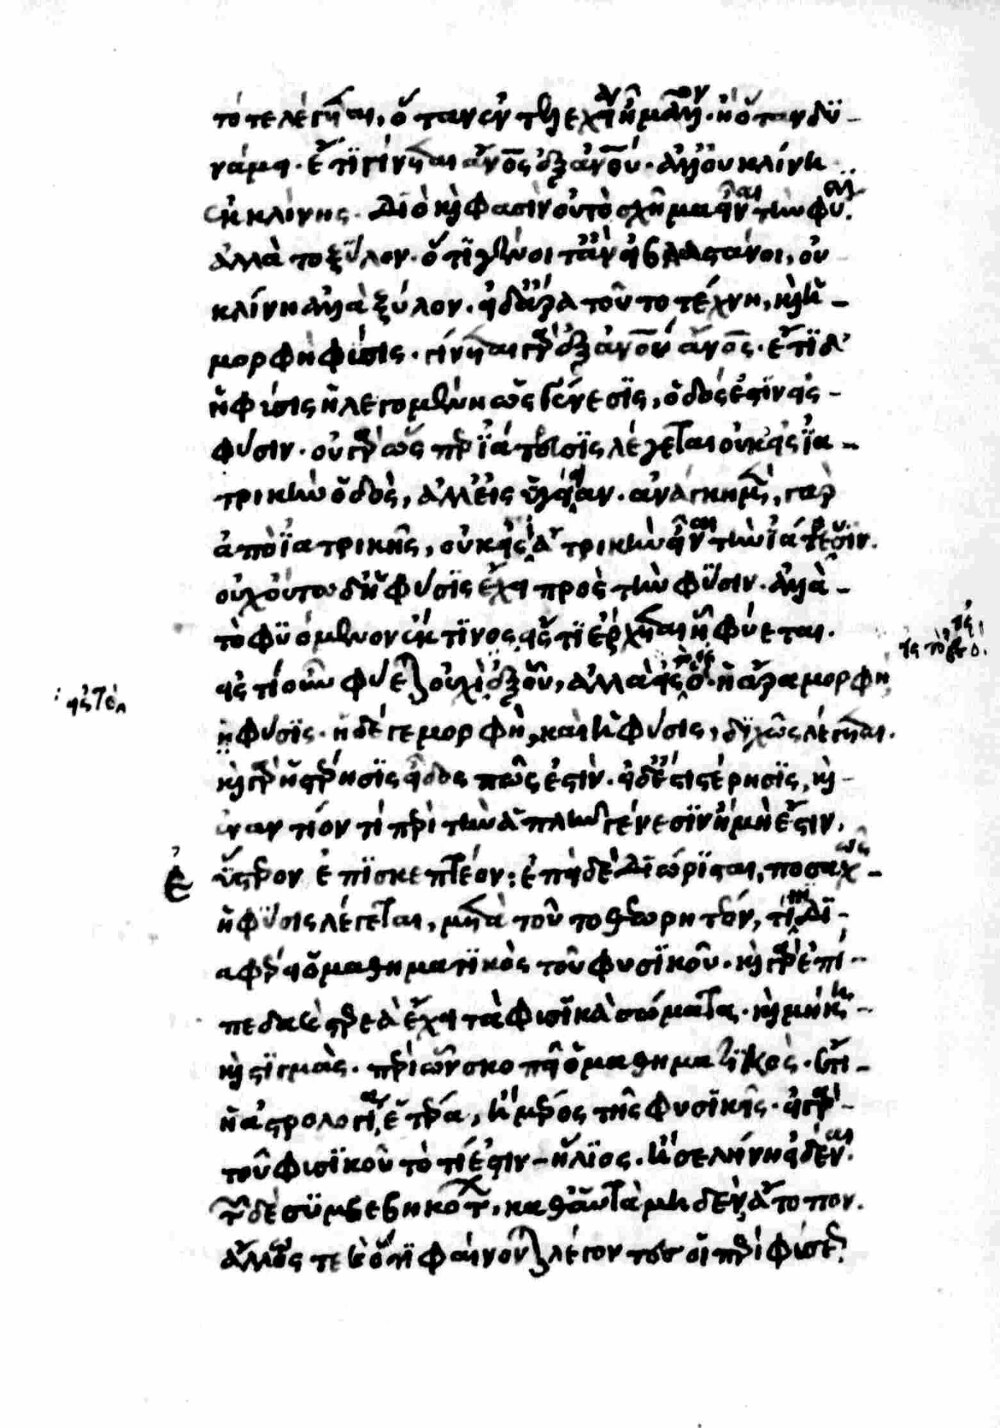 τότε λέγεται, ὅταν ἐντελεχείᾳ ᾖ μᾶλλον. ἢ ὅταν δυ-
νάμει. ἔτι γίνεται ἄνος ἐξ ἀνου. ἀλλ' οὐ κλίνη
ἐκ κλίνης. διὸ καὶ φασὶν οὐ τὸ σχῆμα εἶναι τὴν φύσιν.
ἀλλὰ τὸ ξύλον. ὅτι γένοιτ' ἂν εἰ βλαστάνοι, οὐ
κλίνη ἀλλὰ ξύλον. εἰ δ' ἄρα τοῦτο τέχνη, καὶ ἡ
μορφὴ φύσις. γίνεται γὰρ ἐξ ἀνου ἄνος. ἔτι δ'
ἡ φύσις ἡ λεγομένη ὡς γένεσις, ὁδός ἐστιν εἰς
φύσιν. οὐ γὰρ ὥσπερ ἡ ἰάτρευσις λέγεται οὐκ εἰς ἰα-
τρικὴν ὁδὸς, ἀλλ' εἰς ὑγίειαν. ἀνάγκη μὲν, γὰρ
ἀπὸ ἰατρικῆς, οὐκ εἰς ἰατρικὴν εἶναι τὴν ἰάτρευσιν.
οὐχ οὕτω δ' ἡ φύσις ἔχει πρὸς τὴν φύσιν. ἀλλὰ
τὸ φυόμενον ἐκ τινος εἰς τὶ ἔρχεται ἢ φύεται.
εἰς τί οὖν φύεται οὐχὶ ἐξ οὗ, ἀλλὰ εἰς ὅ. ἡ ἄρα μορφὴ
ἡ φύσις. ἡ δέ γε μορφὴ, καὶ ἡ φύσις, διχῶς λέγεται.
καὶ γὰρ ἡ στέρησις εἶδος πώς ἐστὶν. εἰ δέ ἐστι στέρησις, καὶ
ἐναντίον τί περὶ τὴν ἁπλῆν γένεσιν ἢ μὴ ἔστιν,
ὕστερον ἐπισκεπτέον: ἐπεὶ δὲ διώρισται, ποσαχῶς
ἡ φύσις λέγεται, μετὰ τοῦτο θεωρητέον, τίνι δι-
αφέρει ὁ μαθηματικὸς τοῦ φυσικοῦ. καὶ γὰρ ἐπί-
πεδα καὶ στερεὰ ἔχει τὰ φυσικὰ σώματα. καὶ μήκη
καὶ στιγμὰς. περὶ ὧν σκοπεῖ ὁ μαθηματικὸς. ἔτι
ἡ ἀστρολογία, ἑτέρα, ἢ μέρος τῆς φυσικῆς. εἰ γὰρ
τοῦ φυσικοῦ τὸ τί ἐστιν ἥλιος. ἢ σελήνη εἰδέναι.
τῶν δὲ συμβεβηκότων, καθ' αὑτὰ μηδὲν, ἄτοπον.
ἄλλως τε καὶ ὅτι φαίνονται λέγοντες οἱ περὶ φύσεως